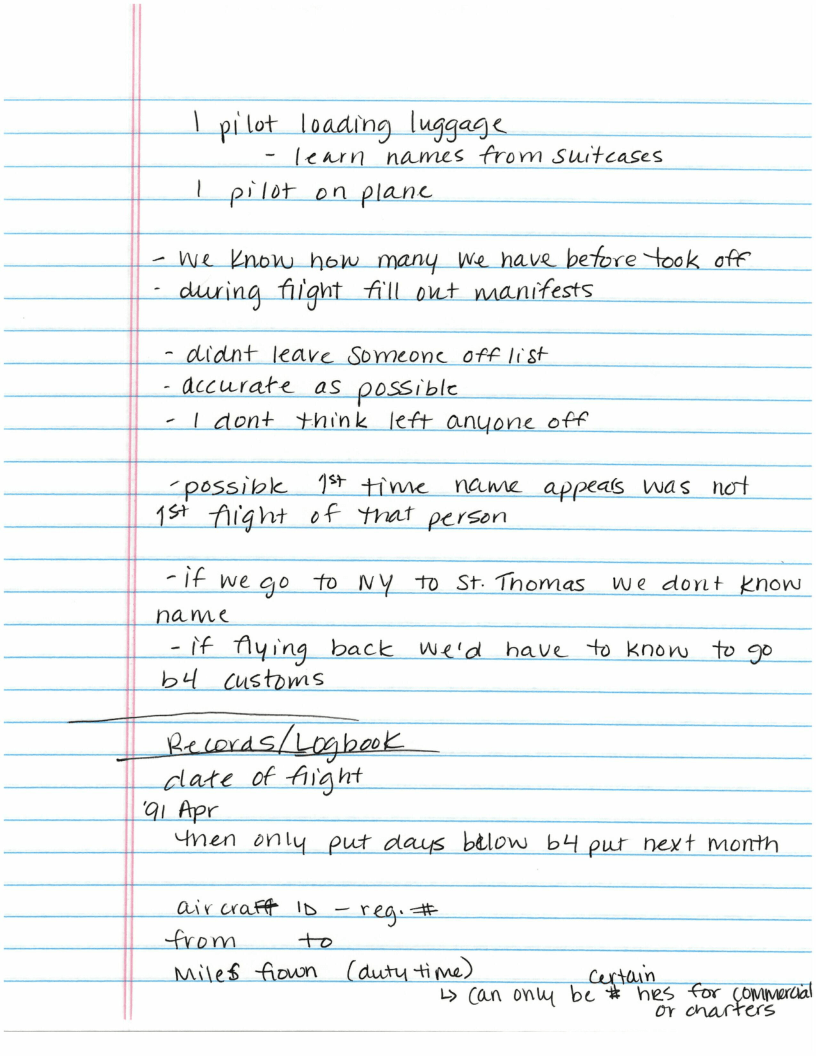 1 pilot loading luggage
- learn names from suitcases
1 pilot on plane
- we know how many we have before took off
- during flight fill out manifests
- didnt leave someone off list
- accurate as possible
- I dont think left anyone off
- possible 1st time name appears was not
1st flight of that person
- if we go to NY to St. Thomas we dont know
name
- if flying back we'd have to know to go
b4 customs
Records/Logbook
date of flight
'91 Apr
then only put days below b4 put next month
aircraft ID - reg. #
from to
Miles flown (duty time)
↳ can only be certain # hrs for commercial
or charters